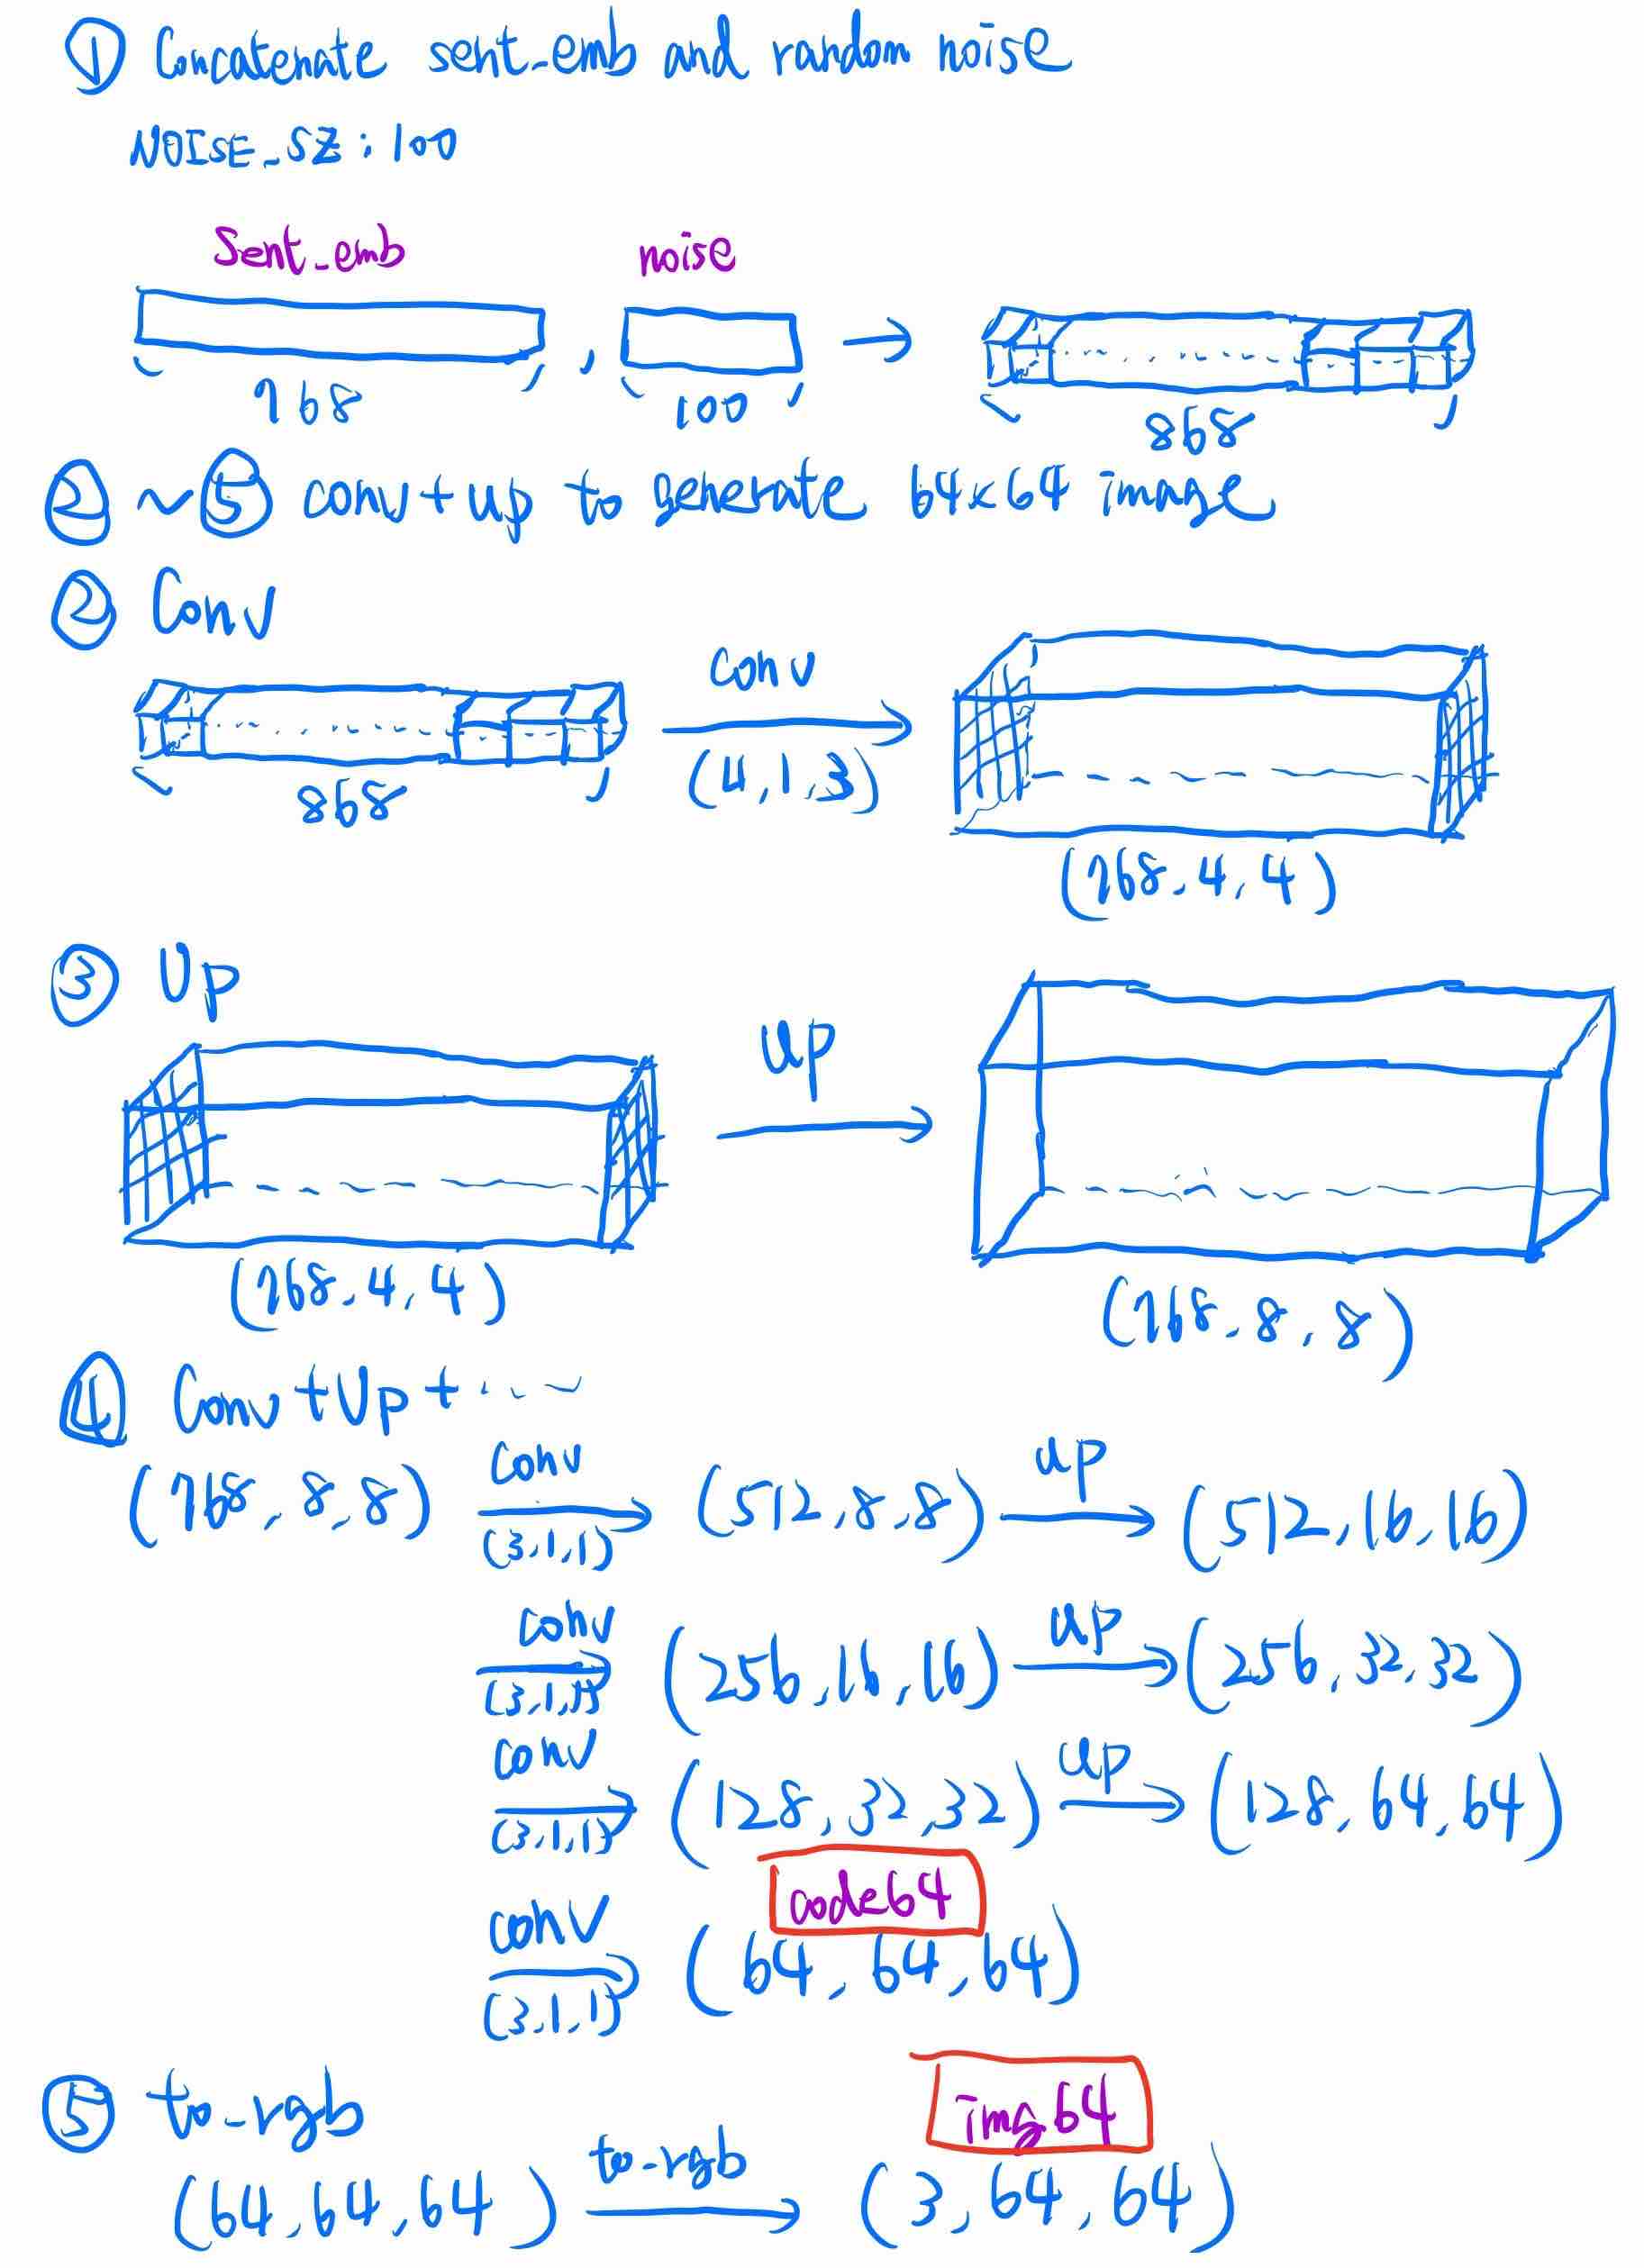 ① Concatenate sent_emb and random noise
NOISE_SZ : 100
Sent_emb noise
768 , 100 → 868
② ~ ⑤ conv + up to generate 64x64 image
② Conv
conv
868 (4,1,3)
(768, 4, 4)
③ Up
up
(768, 4, 4)
(768, 8, 8)
④ Conv + Up + ...
conv up
(768, 8, 8) → (512, 8, 8) → (512, 16, 16)
(3,1,1)
conv up
→ (256, 16, 16) → (256, 32, 32)
(3,1,1)
conv up
→ (128, 32, 32) → (128, 64, 64)
(3,1,1)
code64
conv
→ (64, 64, 64)
(3,1,1)
⑤ to-rgb
img64
to-rgb
(64, 64, 64) → (3, 64, 64)